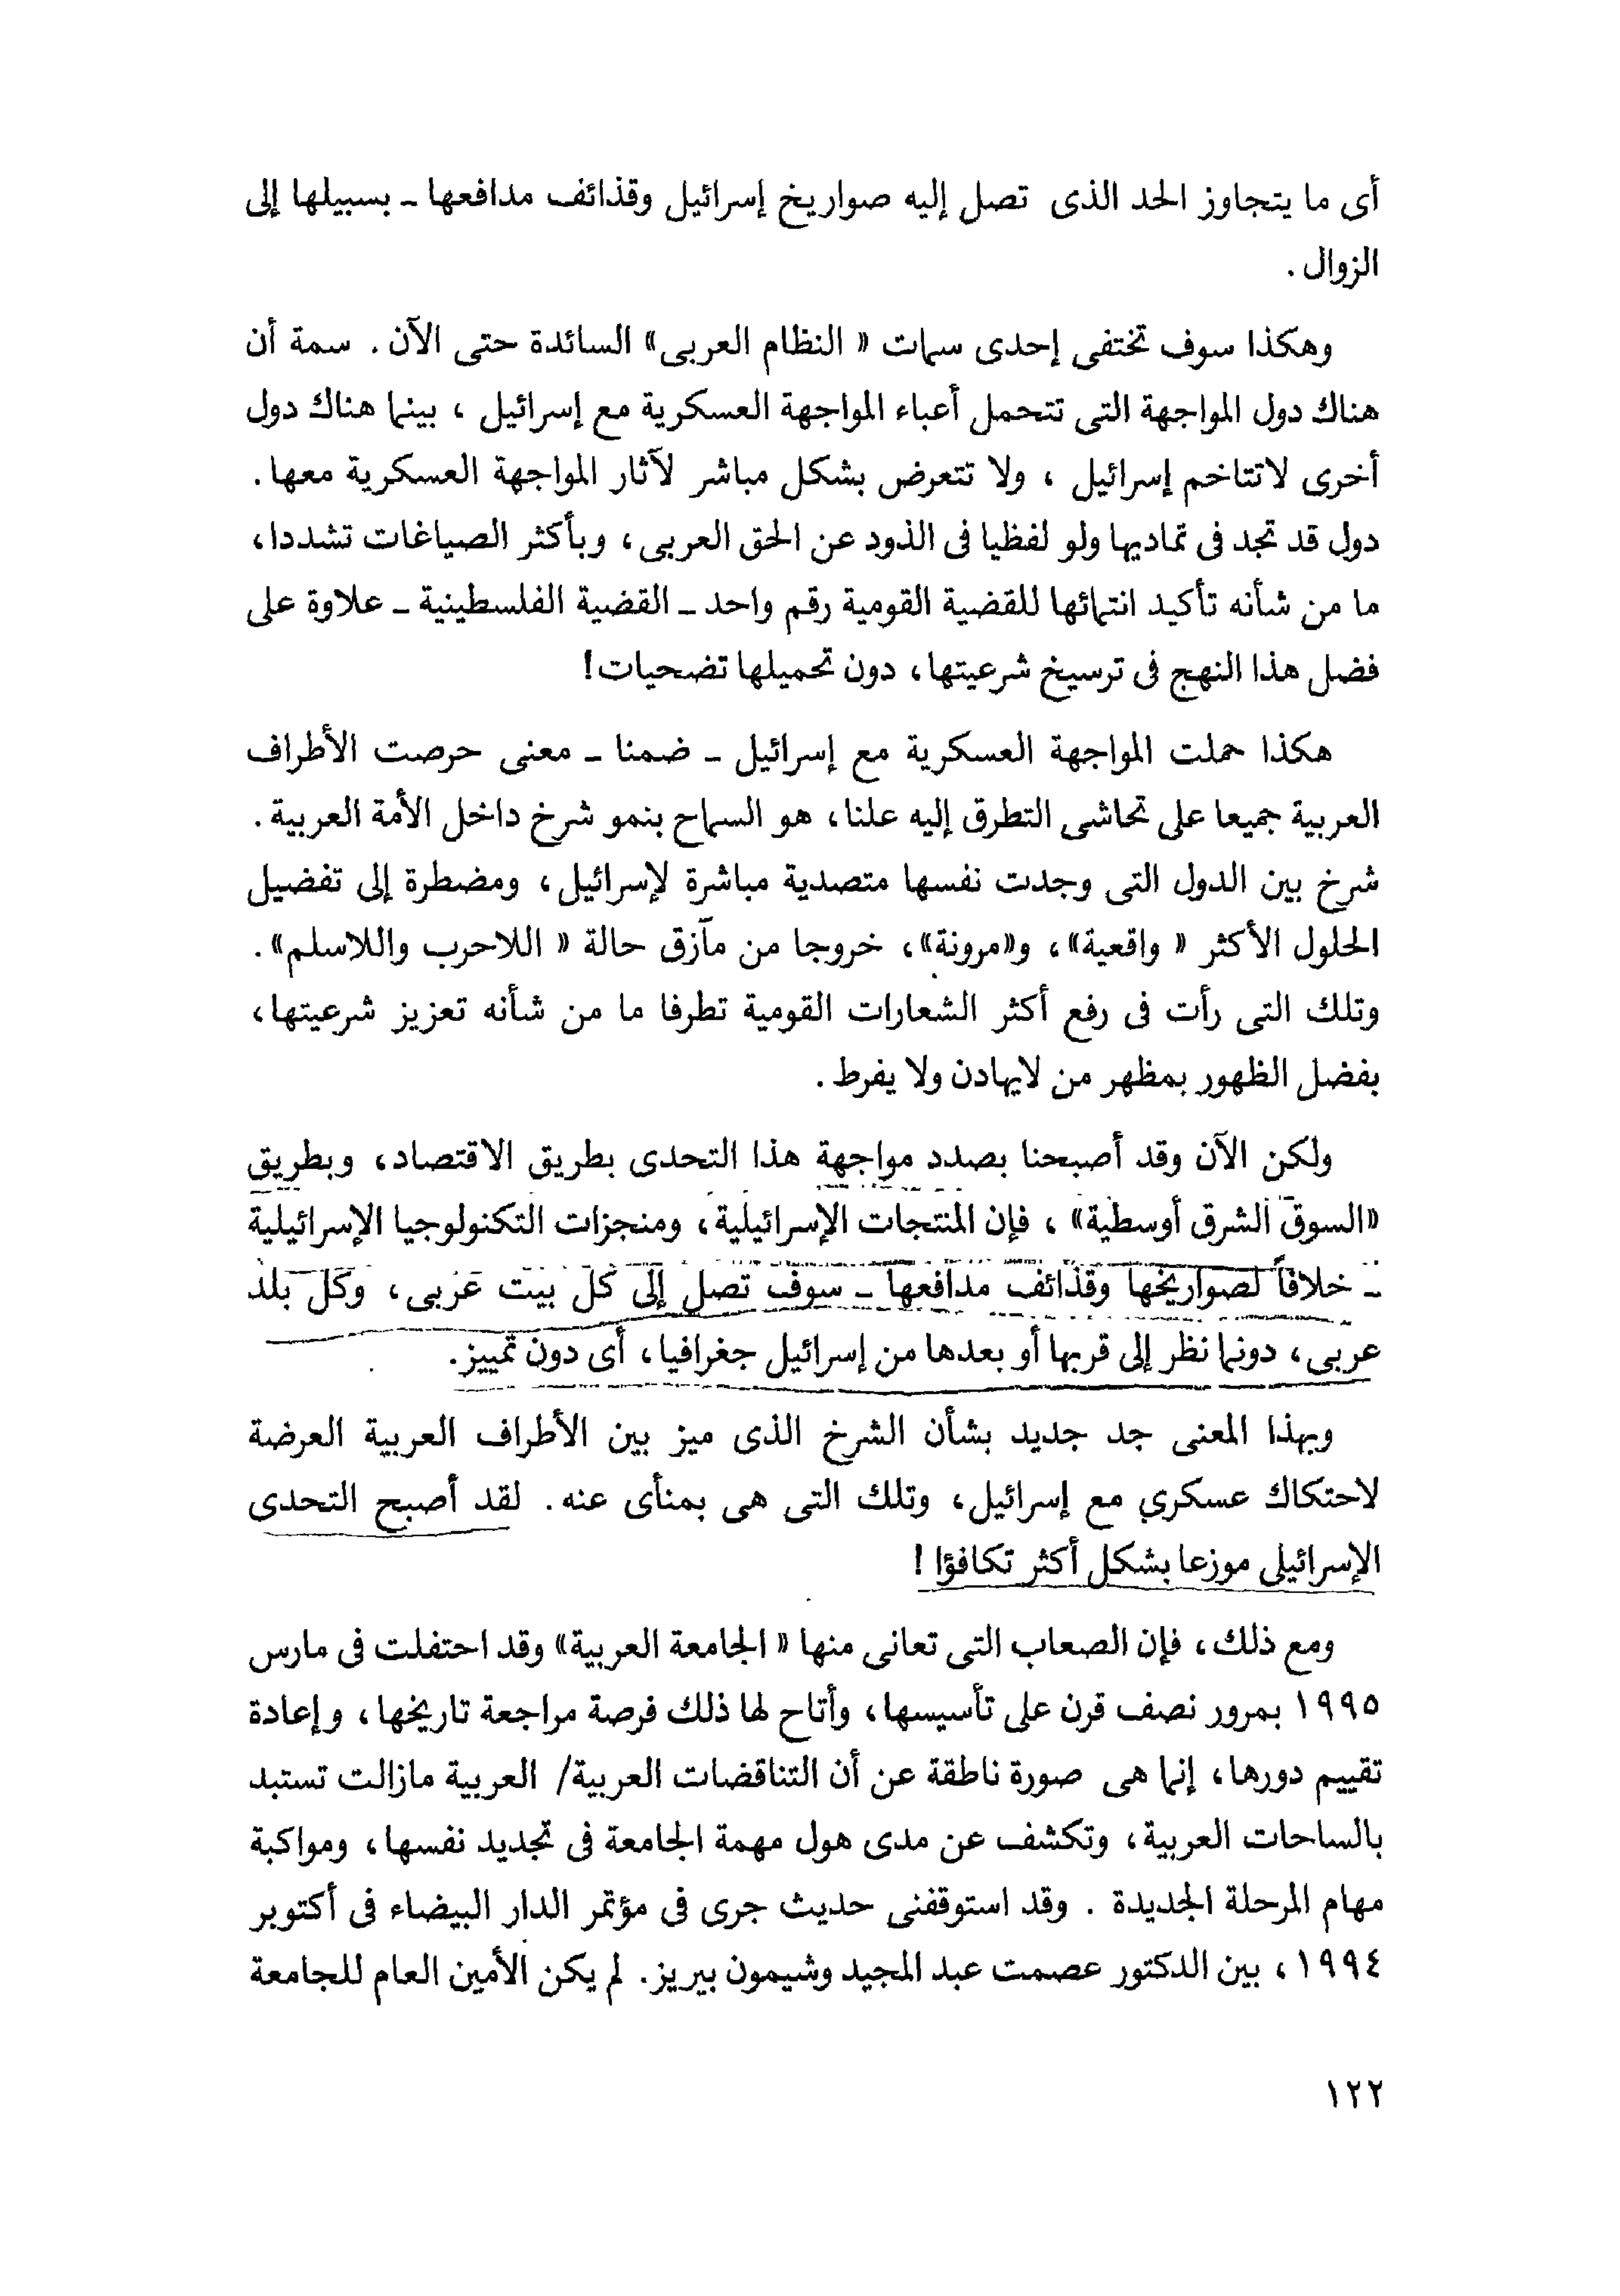 أى ما يتجاوز الحد الذى تصل إليه صواريخ إسرائيل وقذائف مدافعها ـ بسبيلها إلى
الزوال .
وهكذا سوف تختفى إحدى سمات « النظام العربى» السائدة حتى الآن . سمة أن
هناك دول المواجهة التى تتحمل أعباء المواجهة العسكرية مع إسرائيل ، بينما هناك دول
أخرى لاتتاخم إسرائيل ، ولا تتعرض بشكل مباشر لآثار المواجهة العسكرية معها .
دول قد تجد فى تماديها ولو لفظيا فى الذود عن الحق العربى ، وبأكثر الصياغات تشددا ،
ما من شأنه تأكيد انتمائها للقضية القومية رقم واحد ـ القضية الفلسطينية ـ علاوة على
فضل هذا النهج فى ترسيخ شرعيتها ، دون تحميلها تضحيات !
هكذا حملت المواجهة العسكرية مع إسرائيل ـ ضمنا ـ معنى حرصت الأطراف
العربية جميعا على تحاشى التطرق إليه علنا ، هو السماح بنمو شرخ داخل الأمة العربية .
شرخ بين الدول التى وجدت نفسها متصدية مباشرة لإسرائيل ، ومضطرة إلى تفضيل
الحلول الأكثر « واقعية» ، و«مرونة» ، خروجا من مآزق حالة « اللاحرب واللاسلم» .
وتلك التى رأت فى رفع أكثر الشعارات القومية تطرفا ما من شأنه تعزيز شرعيتها ،
بفضل الظهور بمظهر من لايهادن ولا يفرط .
ولكن الآن وقد أصبحنا بصدد مواجهة هذا التحدى بطريق الاقتصاد ، وبطريق
«السوق الشرق أوسطية» ، فإن المنتجات الإسرائيلية ، ومنجزات التكنولوجيا الإسرائيلية
ـ خلافاً لصواريخها وقذائف مدافعها ـ سوف تصل إلى كل بيت عربى ، وكل بلد
عربى ، دونما نظر إلى قربها أو بعدها من إسرائيل جغرافيا ، أى دون تمييز .
وبهذا المعنى جد جديد بشأن الشرخ الذى ميز بين الأطراف العربية العرضة
لاحتكاك عسكري مع إسرائيل ، وتلك التى هى بمنأى عنه . لقد أصبح التحدى
الإسرائيلى موزعا بشكل أكثر تكافؤا !
ومع ذلك ، فإن الصعاب التى تعانى منها « الجامعة العربية» وقد احتفلت فى مارس
١٩٩٥ بمرور نصف قرن على تأسيسها ، وأتاح لها ذلك فرصة مراجعة تاريخها ، وإعادة
تقييم دورها ، إنما هى صورة ناطقة عن أن التناقضات العربية/ العربية مازالت تستبد
بالساحات العربية ، وتكشف عن مدى هول مهمة الجامعة فى تجديد نفسها ، ومواكبة
مهام المرحلة الجديدة . وقد استوقفنى حديث جرى فى مؤتمر الدار البيضاء فى أكتوبر
١٩٩٤ ، بين الدكتور عصمت عبد المجيد وشيمون بيريز . لم يكن الأمين العام للجامعة
١٢٢